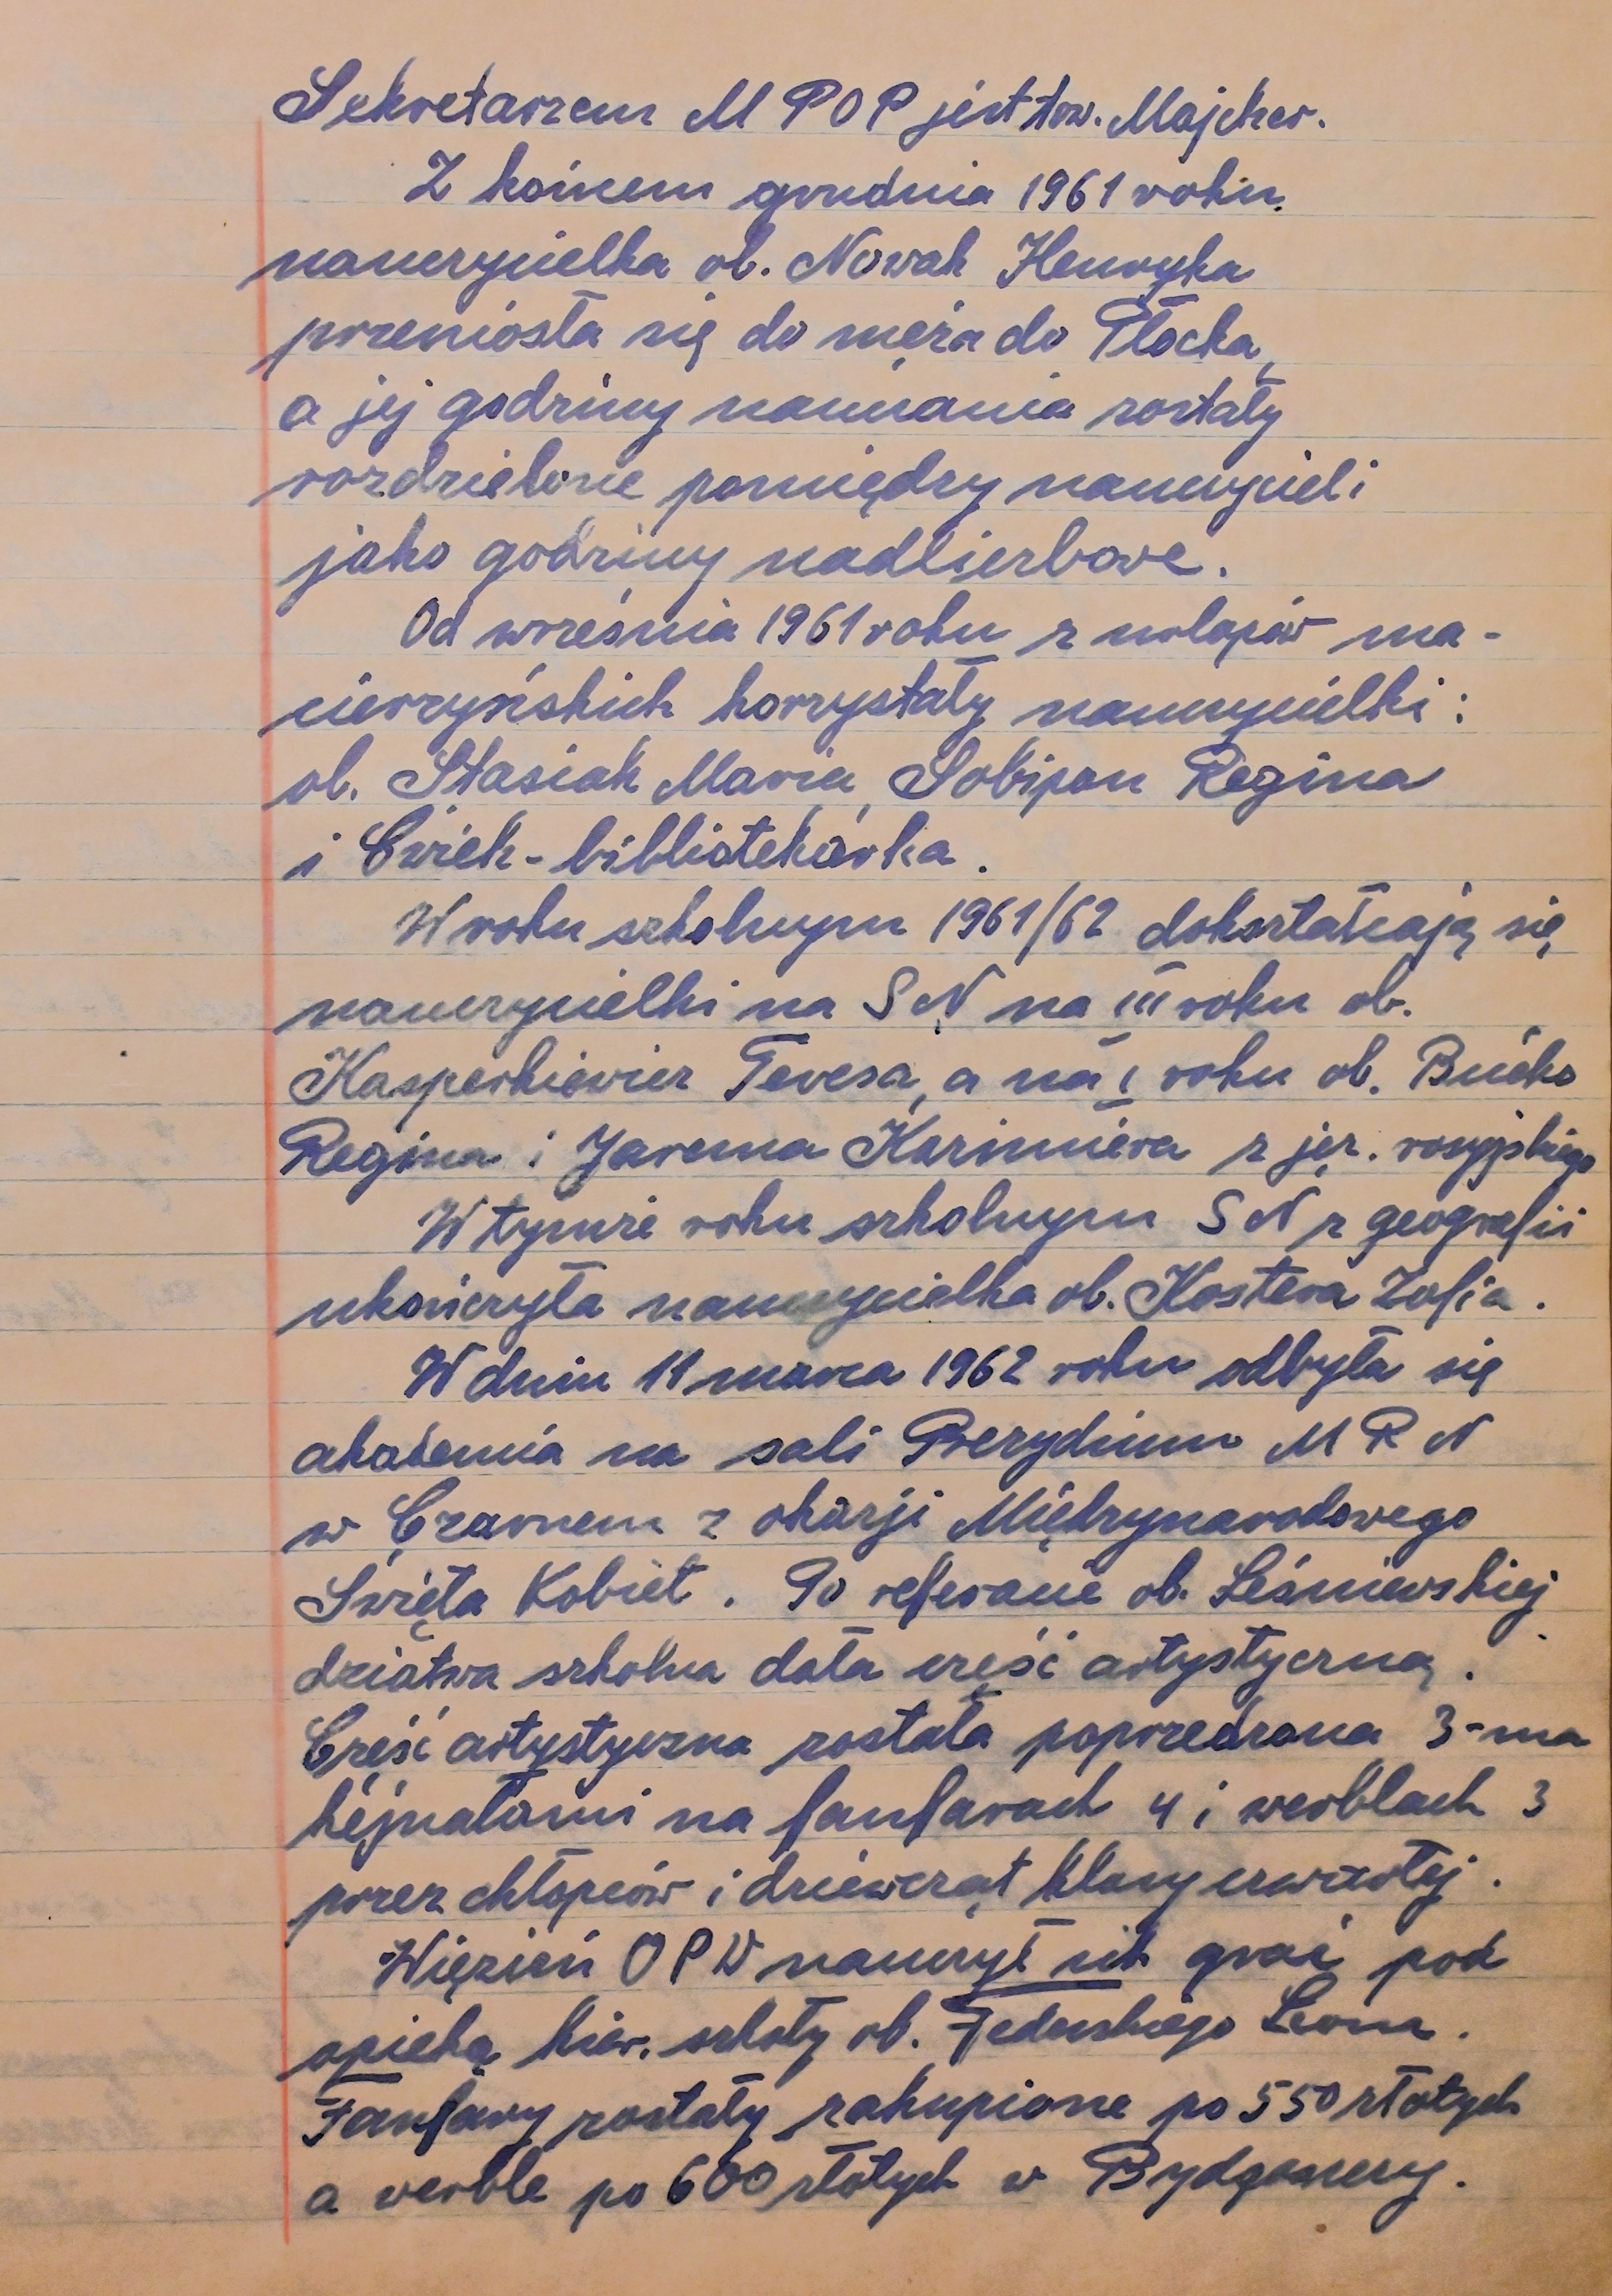 Sekretarzem M POP jest tow. Majcher.
Z końcem grudnia 1961 roku
nauczycielka ob. Nowak Henryka
przeniosła się do męża do Płocka,
a jej godziny nauczania zostały
rozdzielone pomiędzy nauczycieli
jako godziny nadliczbowe.
Od września 1961 roku z urlopów ma-
cierzyńskich korzystały nauczycielki:
ob. Stasiak Maria, Sobipan Regina
i Ćwiek - bibliotekarka.
W roku szkolnym 1961/62 dokształcają się
nauczycielki na SN na III roku ob.
Kasperkiewicz Teresa, a na I roku ob. Bućko
Regina i Jarema Kazimiera z jęz. rosyjskiego
W tymże roku szkolnym SN z geografii
ukończyła nauczycielka ob. Kostera Zofia.
W dniu 11 marca 1962 roku odbyła się
akademia na sali Prezydium MRN
w Czarnem z okazji Międzynarodowego
Święta Kobiet. Po referacie ob. Leśniewskiej
dziatwa szkolna dała część artystyczną.
Część artystyczna została poprzedzona 3-ma
hejnałami na fanfarach 4 i werblach 3
przez chłopców i dziewcząt klasy czwartej.
Więzień OPW nauczył ich grać pod
opieką kier. szkoły ob. Federskiego Leona.
Fanfary zostały zakupione po 550 złotych
a werble po 600 złotych w Bydgoszczy.